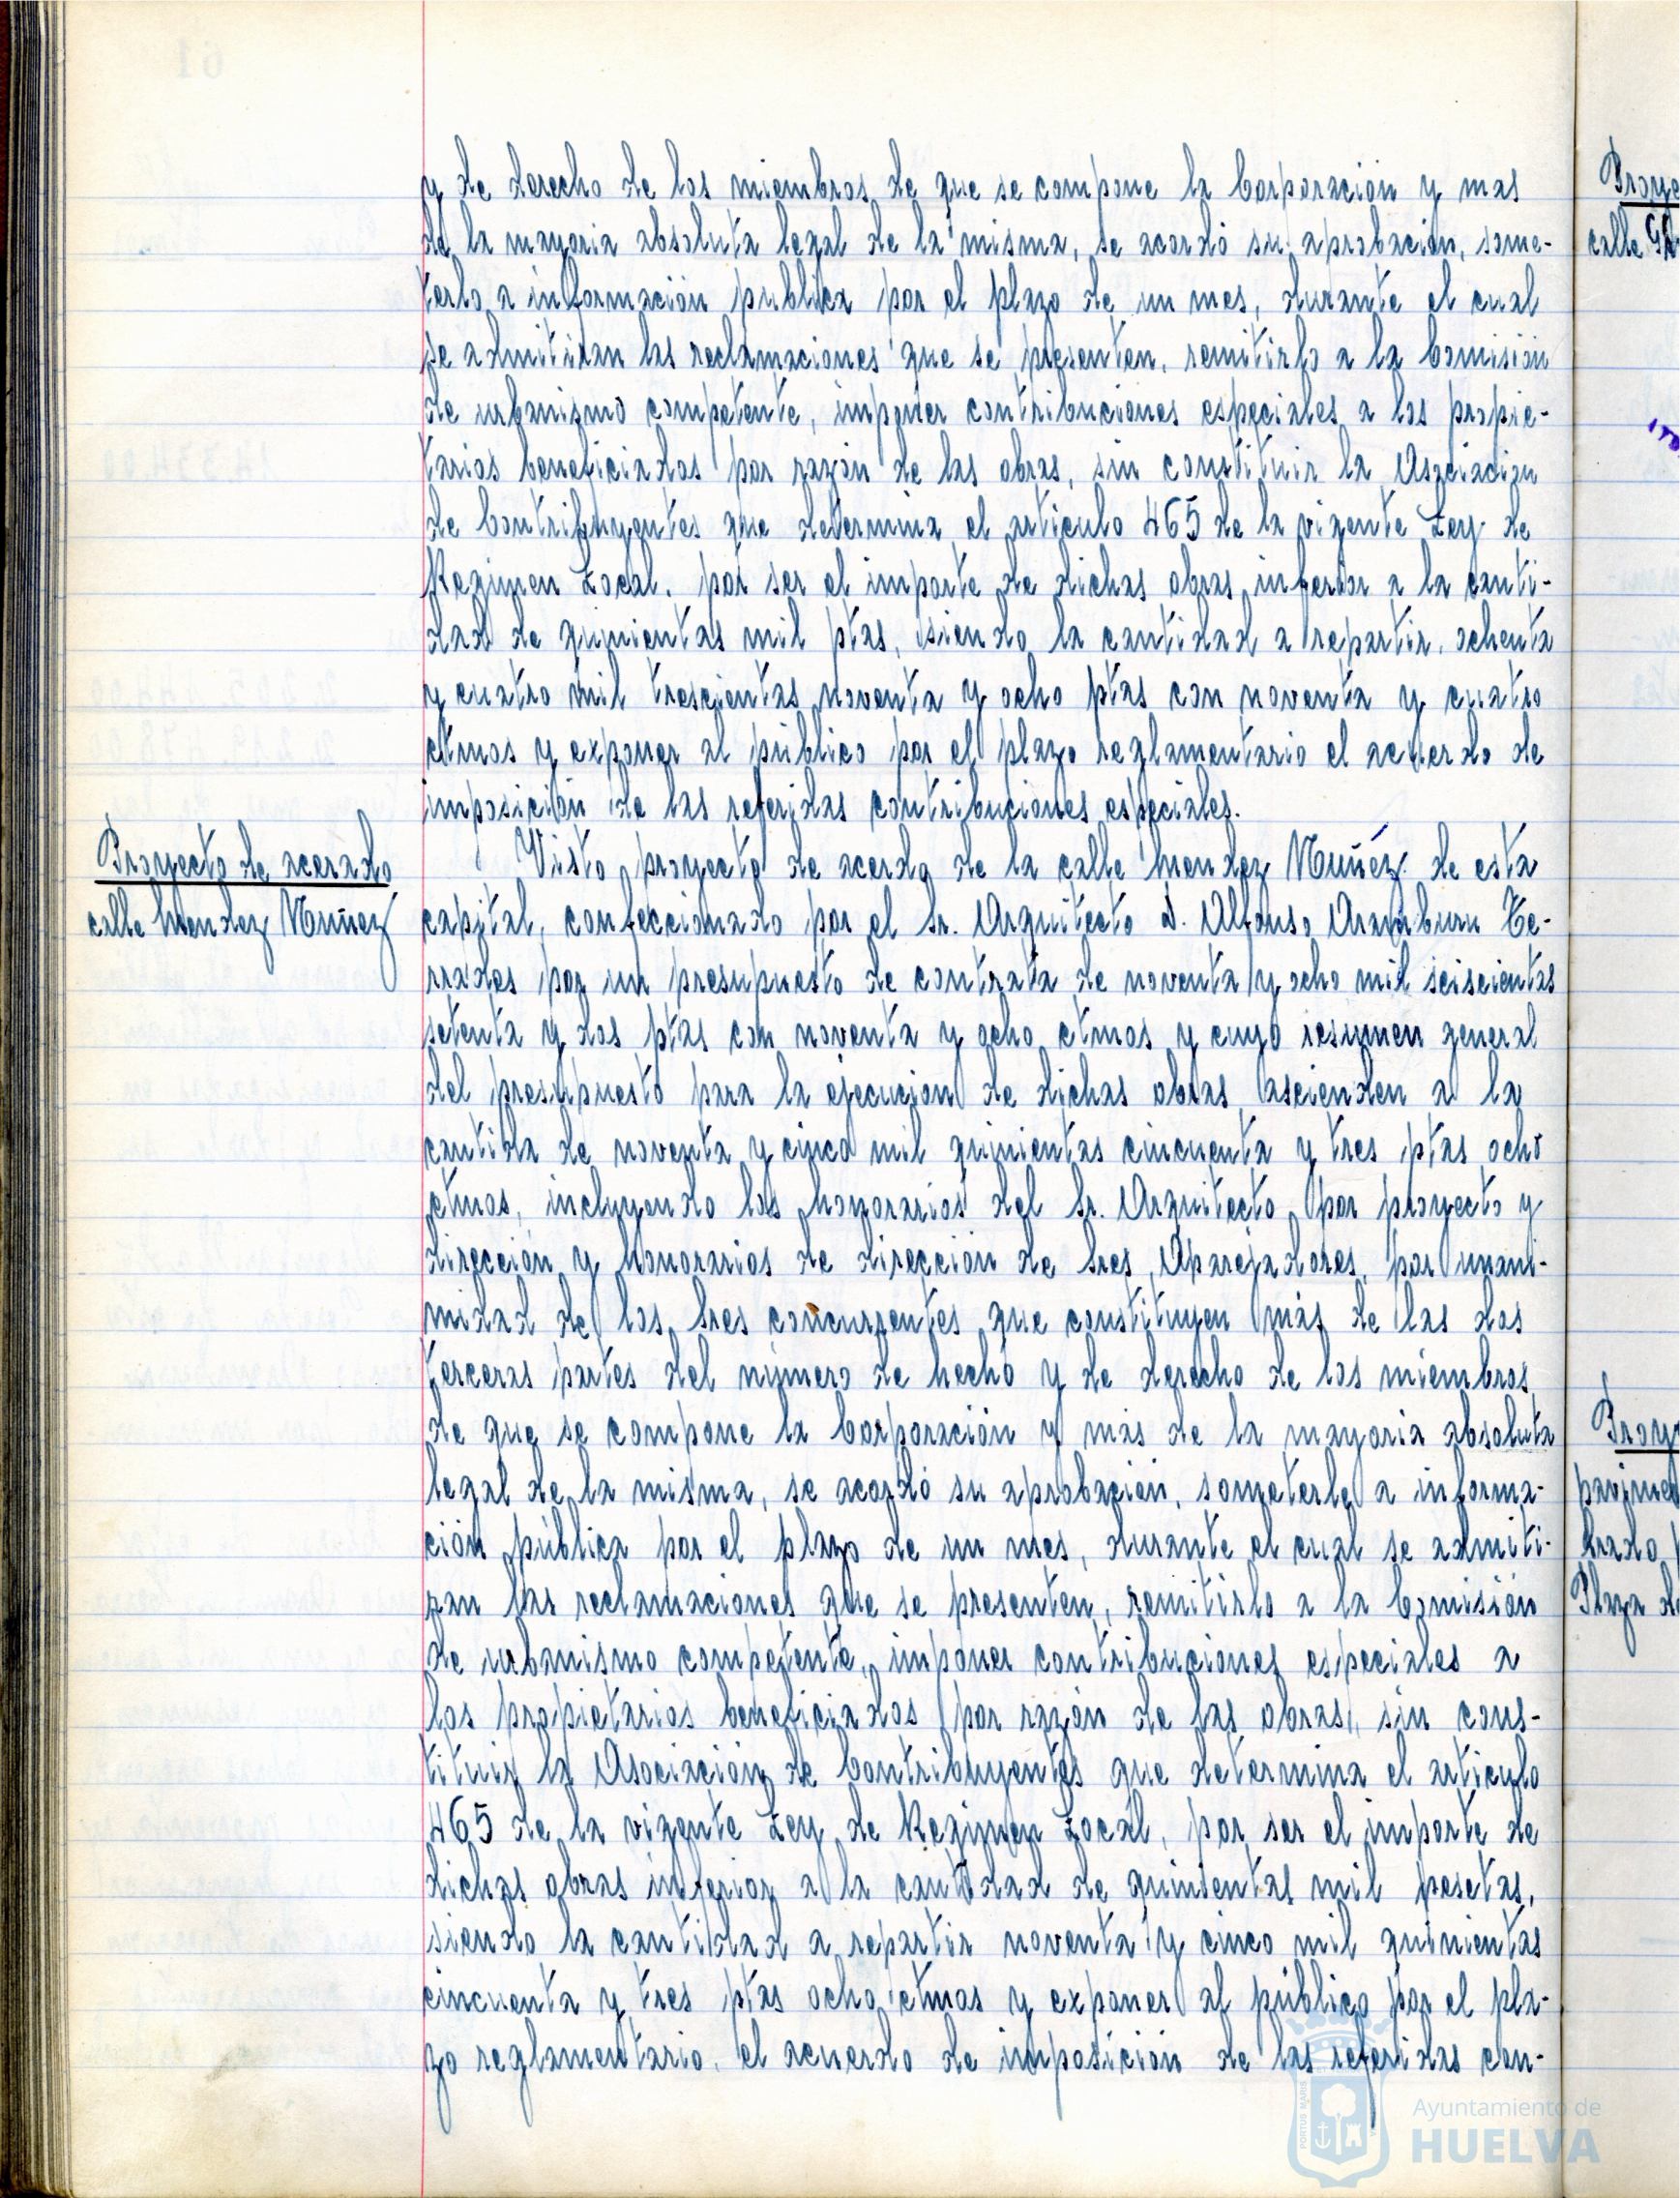 y de derecho de los miembros de que se compone la Corporación y mas
de la mayoria absoluta legal de la misma, se acordó su aprobación, some-
terlo a información publica por el plazo de un mes, durante el cual
se admitiran las reclamaciones que se presenten, remitirlo a la Comisión
de urbanismo competente, imponer contribuciones especiales a los propie-
tarios beneficiados por razón de las obras, sin constituir la Asociación
de Contribuyentes que determina el articulo 465 de la vigente Ley de
Regimen Local, por ser el importe de dichas obras inferior a la canti-
dad de quinientas mil ptas, siendo la cantidad a repartir, ochenta
y cuatro mil trescientas noventa y ocho ptas con noventa y cuatro
ctmos y exponer al público por el plazo reglamentario el acuerdo de
imposición de las referidas contribuciones especiales.
Proyecto de acerado
calle Mendez Nuñez
Visto proyecto de acerdo de la calle Mendez Nuñéz de esta
capital, confeccionado por el Sr. Arquitecto D. Alfonso Aramburu Te-
rrades por un presupuesto de contrata de noventa y ocho mil seiscientas
setenta y dos ptas con noventa y ocho ctmos y cuyo resumen general
del presupuesto para la ejecución de dichas obras, ascienden a la
cantida de noventa y cinco mil quinientas cincuenta y tres ptas ocho
ctmos, incluyendo los honorarios del Sr. Arquitecto por proyecto y
dirección y honorarios de dirección de Sres Aparejadores, por unani-
midad de los Sres concurrentes que constituyen más de las dos
terceras partes del número de hecho y de derecho de los miembros
de que se compone la Corporación y mas de la mayoria absoluta
legal de la misma, se acordó su aprobación, someterlo a informa-
ción pública por el plazo de un mes, durante el cual se admiti-
ran las reclamaciones que se presenten, remitirlo a la Comisión
de urbanismo competente, imponer contribuciones especiales a
los propietarios beneficiados por razón de las obras, sin cons-
tituir la Asociación de Contribuyentes que determina el articulo
465 de la vigente Ley de Regimen Local, por ser el importe de
dichas obras inferior a la cantidad de quinientas mil pesetas,
siendo la cantidad a repartir noventa y cinco mil quinientas
cincuenta y tres ptas ocho ctmos y exponer al público por el pla-
zo reglamentario, el acuerdo de imposición de las referidas con-
Ayuntamiento de
HUELVA
calle
Plaza